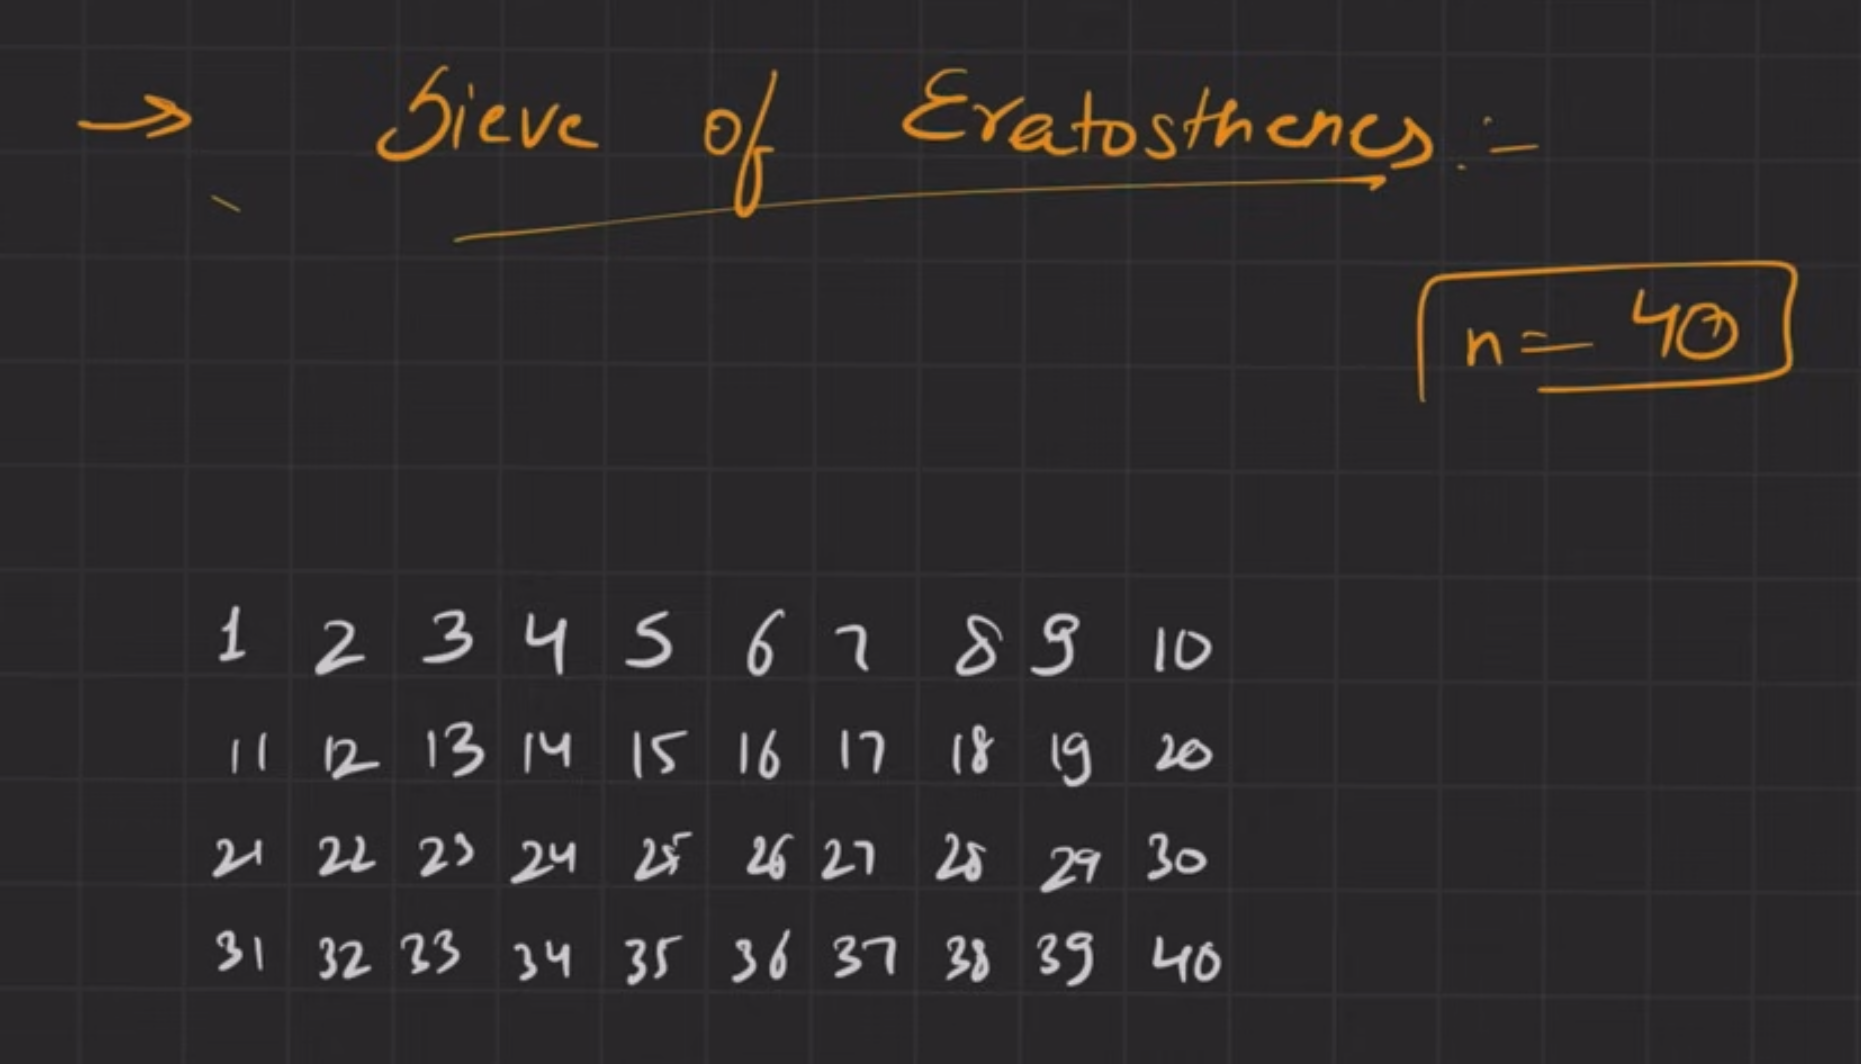 → Sieve of Eratosthenes :-
n = 40
1 2 3 4 5 6 7 8 9 10
11 12 13 14 15 16 17 18 19 20
21 22 23 24 25 26 27 28 29 30
31 32 33 34 35 36 37 38 39 40